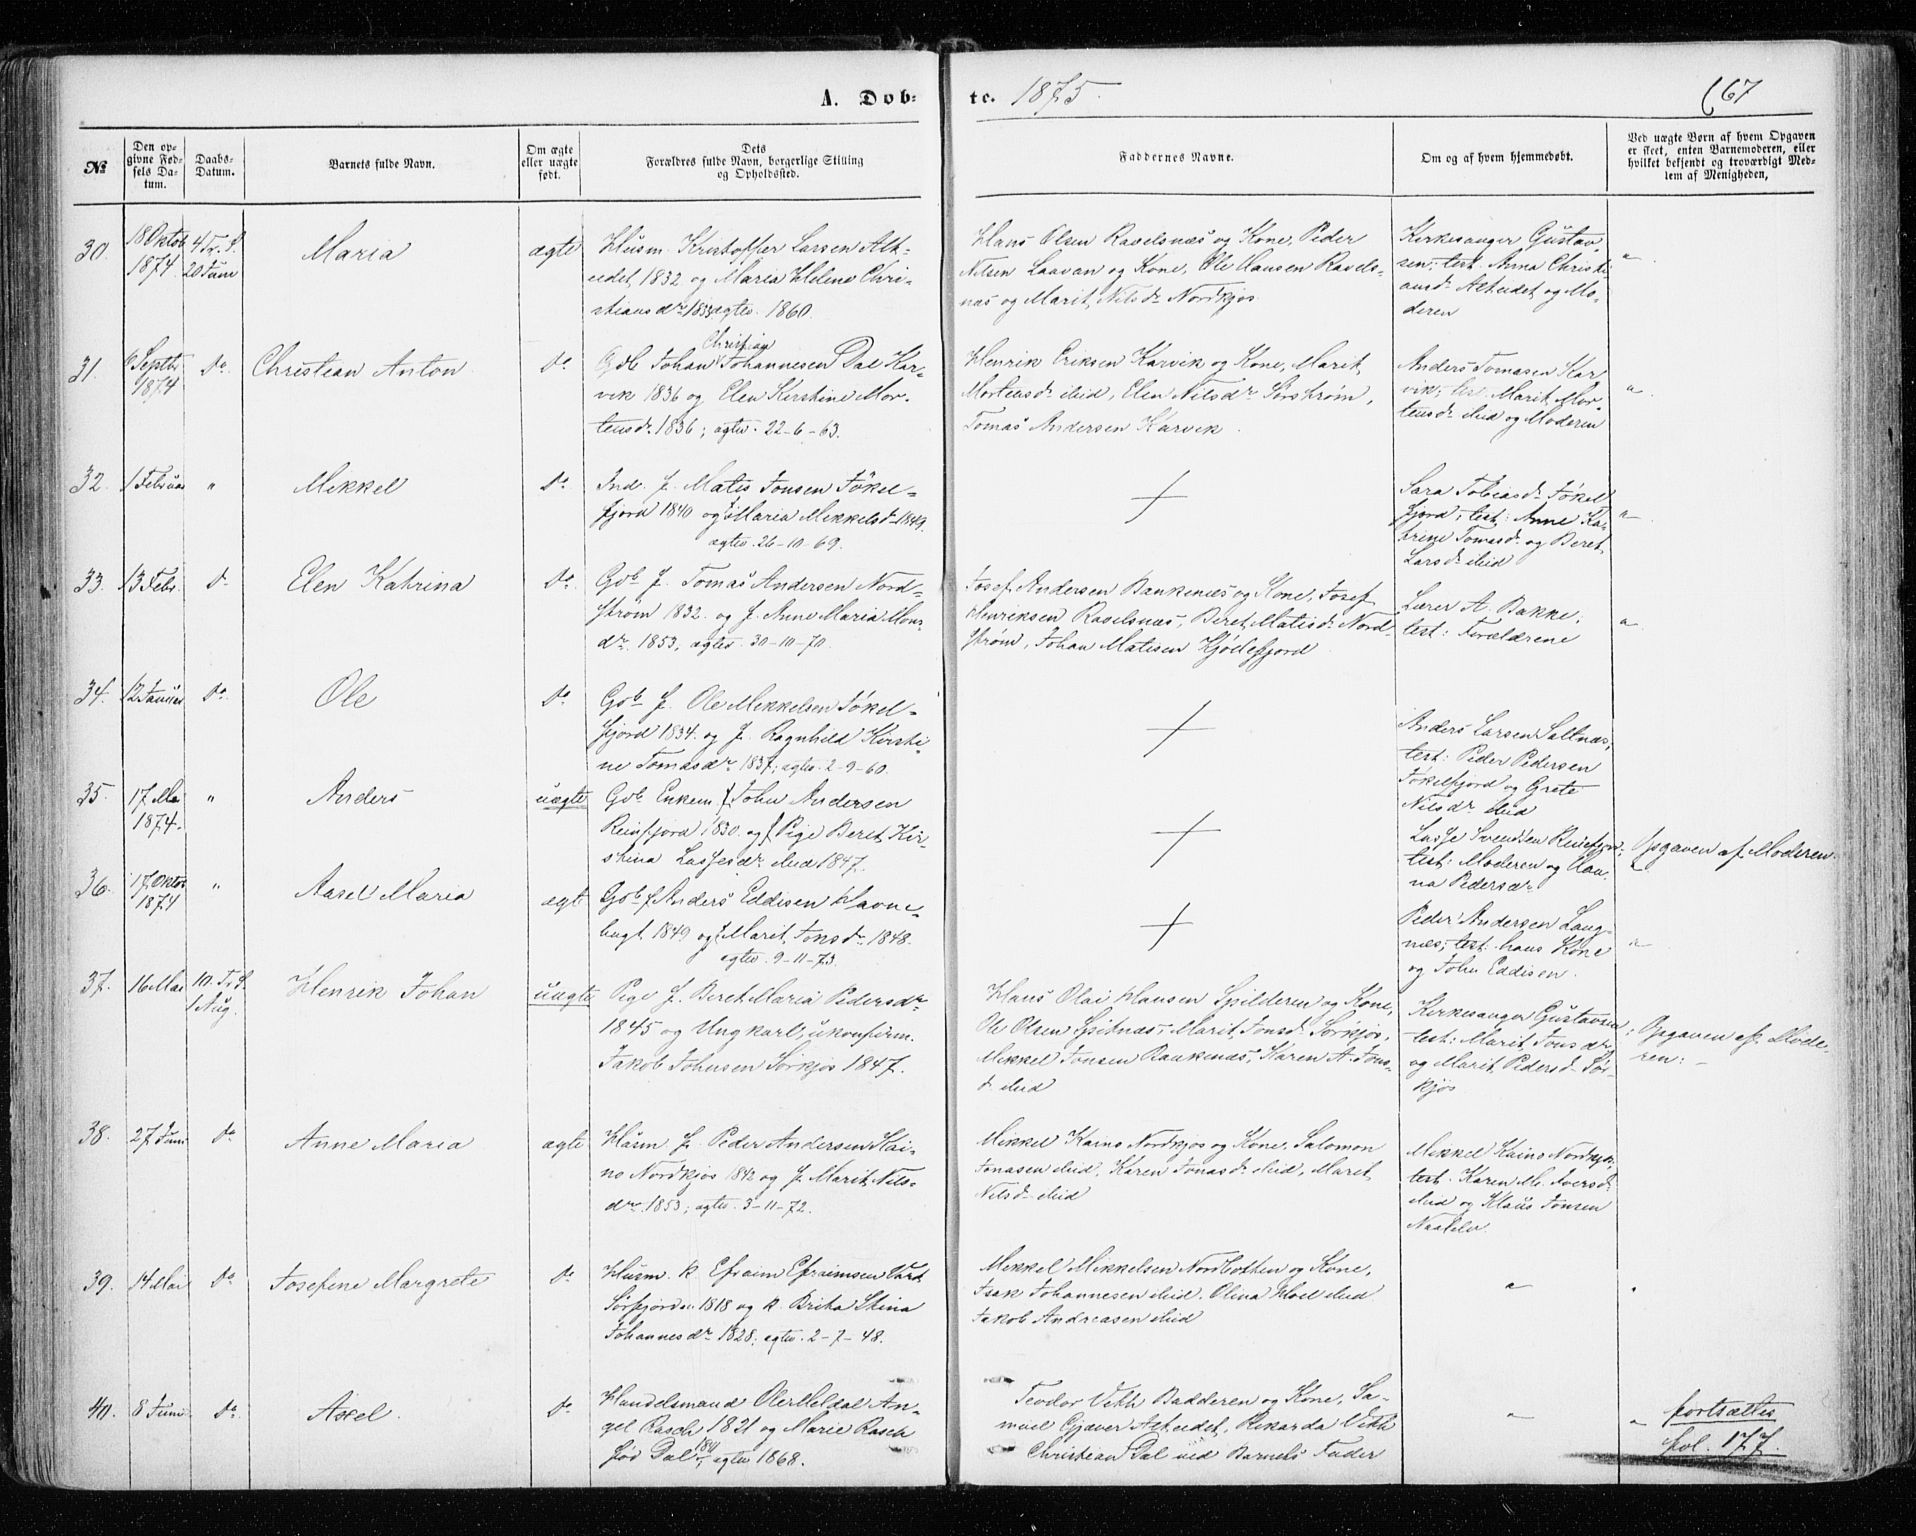 A. Døbte. 1875. 67
№
Den opgivne Fødsels Datum.
Daabs-Datum.
Barnets fulde Navn.
Om ægte eller uægte født.
Dets Forældres fulde Navn, borgerlige Stilling og Opholdssted.
Faddernes Navne.
Om og af hvem hjemmedøbt.
Ved uægte Børn af hvem Opgaven er skeet, enten Barnemoderen, eller hvilket bekjendt og troværdigt Medlem af Menigheden,
30.
18 Oktob 1874.
4 Tr. S. 20 Juni
Maria
ægte
Husm. Kristoffer Larsen Alt-
eidet, 1832 og Maria Helene Chri-
stiansdr 1833 ægtev. 1860.
Hans Olsen Ravelsnæs og Kone, Peder
Nilsen Laavan og Kone, Ole Hansen Ravels-
næs og Marit Nilsdr Nordkjos
Kirkesanger Gustav-
sen, test. Anna Christi-
ansdr Alteidet og Mo-
deren
"
31.
6 Septbr 1874
do.
Christian Anton
do.
Gdb Johan Christian Johannesen Dal Kar-
vik 1836 og Elen Kirstine Mor-
tensdr. 1836; ægtev. 22-6-63.
Henrik Eriksen Karvik og Kone, Marit
Mortensdr ibid, Elen Nilsdr Sørstrøm,
Tomas Andersen Karvik.
Anders Tomasen Kar
vik; test. Marit Mor-
tensdr ibid og Moderen
"
32.
1 Februar
"
Mikkel
do.
Ind. f. Matis Jonsen Jøkel-
fjord 1840 og f. Maria Mikkelsdr 1849.
ægtev. 26-10-69.
+
Sara Tobiasdr Jøkel
fjord, test: Anne Ka-
trine Tomasdr og Beret
Larsdr ibid
"
33.
13 Febr.
do
Elen Katrina
do.
Gdb f. Tomas Andersen Nord-
strøm 1832. og f. Anne Maria Mons
dr. 1853, ægtev. 30-10-70.
Josef Andersen Baukenæs og Kone, Josef
Henriksen Ravelsnæs, Beret Matisdr Nord-
strøm, Johan Matisen Kjødefjord
Lærer A. Bakke,
test: Forældrene
"
34.
12 Januar
do.
Ole
do
Gdb f. Ole Mikkelsen Jøkel-
fjord 1834. og f. Ragnhild Kirsti-
ne Tomasdr 1837; ægtev. 2-9-60.
+
Anders Larsen Saltnæs,
test: Peder Pedersen
Jøkelfjord og Grete
Nilsdr ibid
35.
17 Mai 1874.
"
Anders
uægte
Gdb Enkem. f John Andersen
Reinfjord 1830. og f Pige Beret Kir-
stina Lassesdr ibid 1847.
+
Lasse Svendsen Reinfjor;
test: Moderen og Han-
na Pedersdr
Opgaven af Moderen.
36.
17 Oktob 1874
"
Aasel Maria
ægte
Gdb f Anders Eddisen Havne-
bugt 1849 og f Marit Jonsdr. 1848.
ægtev. 9-11-73.
+
Peder Andersen Laug-
næs, test. hans Kone
og John Eddisen.
"
37.
16 Mai
10. Tr. S. 1 Aug.
Henrik Johan
uægte
Pige f. Beret Maria Pedersdr
1845 og Ungkarl, ukonfirm.
Jakob Johnsen Sørkjos 1847.
Hans Olai Hansen Spilderen og Kone,
Ole Olsen Spitnæs, Marit Jonsdr Sørkjos,
Mikkel Jonsen Baukenæs, Karen A. Jons
dr ibid
Kirkesanger Gustavsen
test: Marit Jonsdr
og Marit Pedersdr Sør-
kjos
Opgaven af Mode-
ren:
38.
27 Juni
do
Anne Maria
ægte
Husm f. Peder Andersen Kai-
no Nordkjos 1842 og f. Marit Nils-
dr. 1853; ægtev. 3-11-72.
Mikkel Kaino Nordkjos og Kone, Salomon
Jonasen ibid, Karen Jonasdr ibid, Marit
Nilsdr ibid
Mikkel Kaino Nordkjos,
test. Karen M. Iversdr
ibid og Klaus Jonsen
39.
14 Mai
do
Josefine Margrete
do.
Husm. k Efraim Efraimsen
Sørfjorden 1818 og k. Brita Stina
Johannesdr 1828. ægtev. 2-7-48.
Mikkel Mikkelsen Nordbotten og Kone,
Isak Johannesen ibid. Olina Hoel ibid
Jakob Andreasen ibid
"
"
40.
8 Juni
do.
Axel.
do.
Handelsmand Ole Meldal An-
gel Rasch 1821 og Marie Rasch
fød Dal, ægtev 1868.
Teodor Veth Badderen og Kone, Sa-
muel Gjæver Alteidet, Rikarda Veth
Christian Dal ved Barnets Fader
"
"
fortsættes
fol. 177.